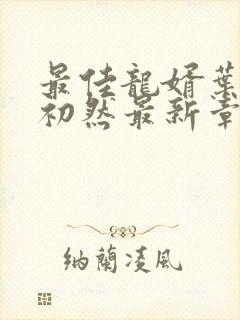 最佳龍婿葉
初然最新章
納蘭凌風